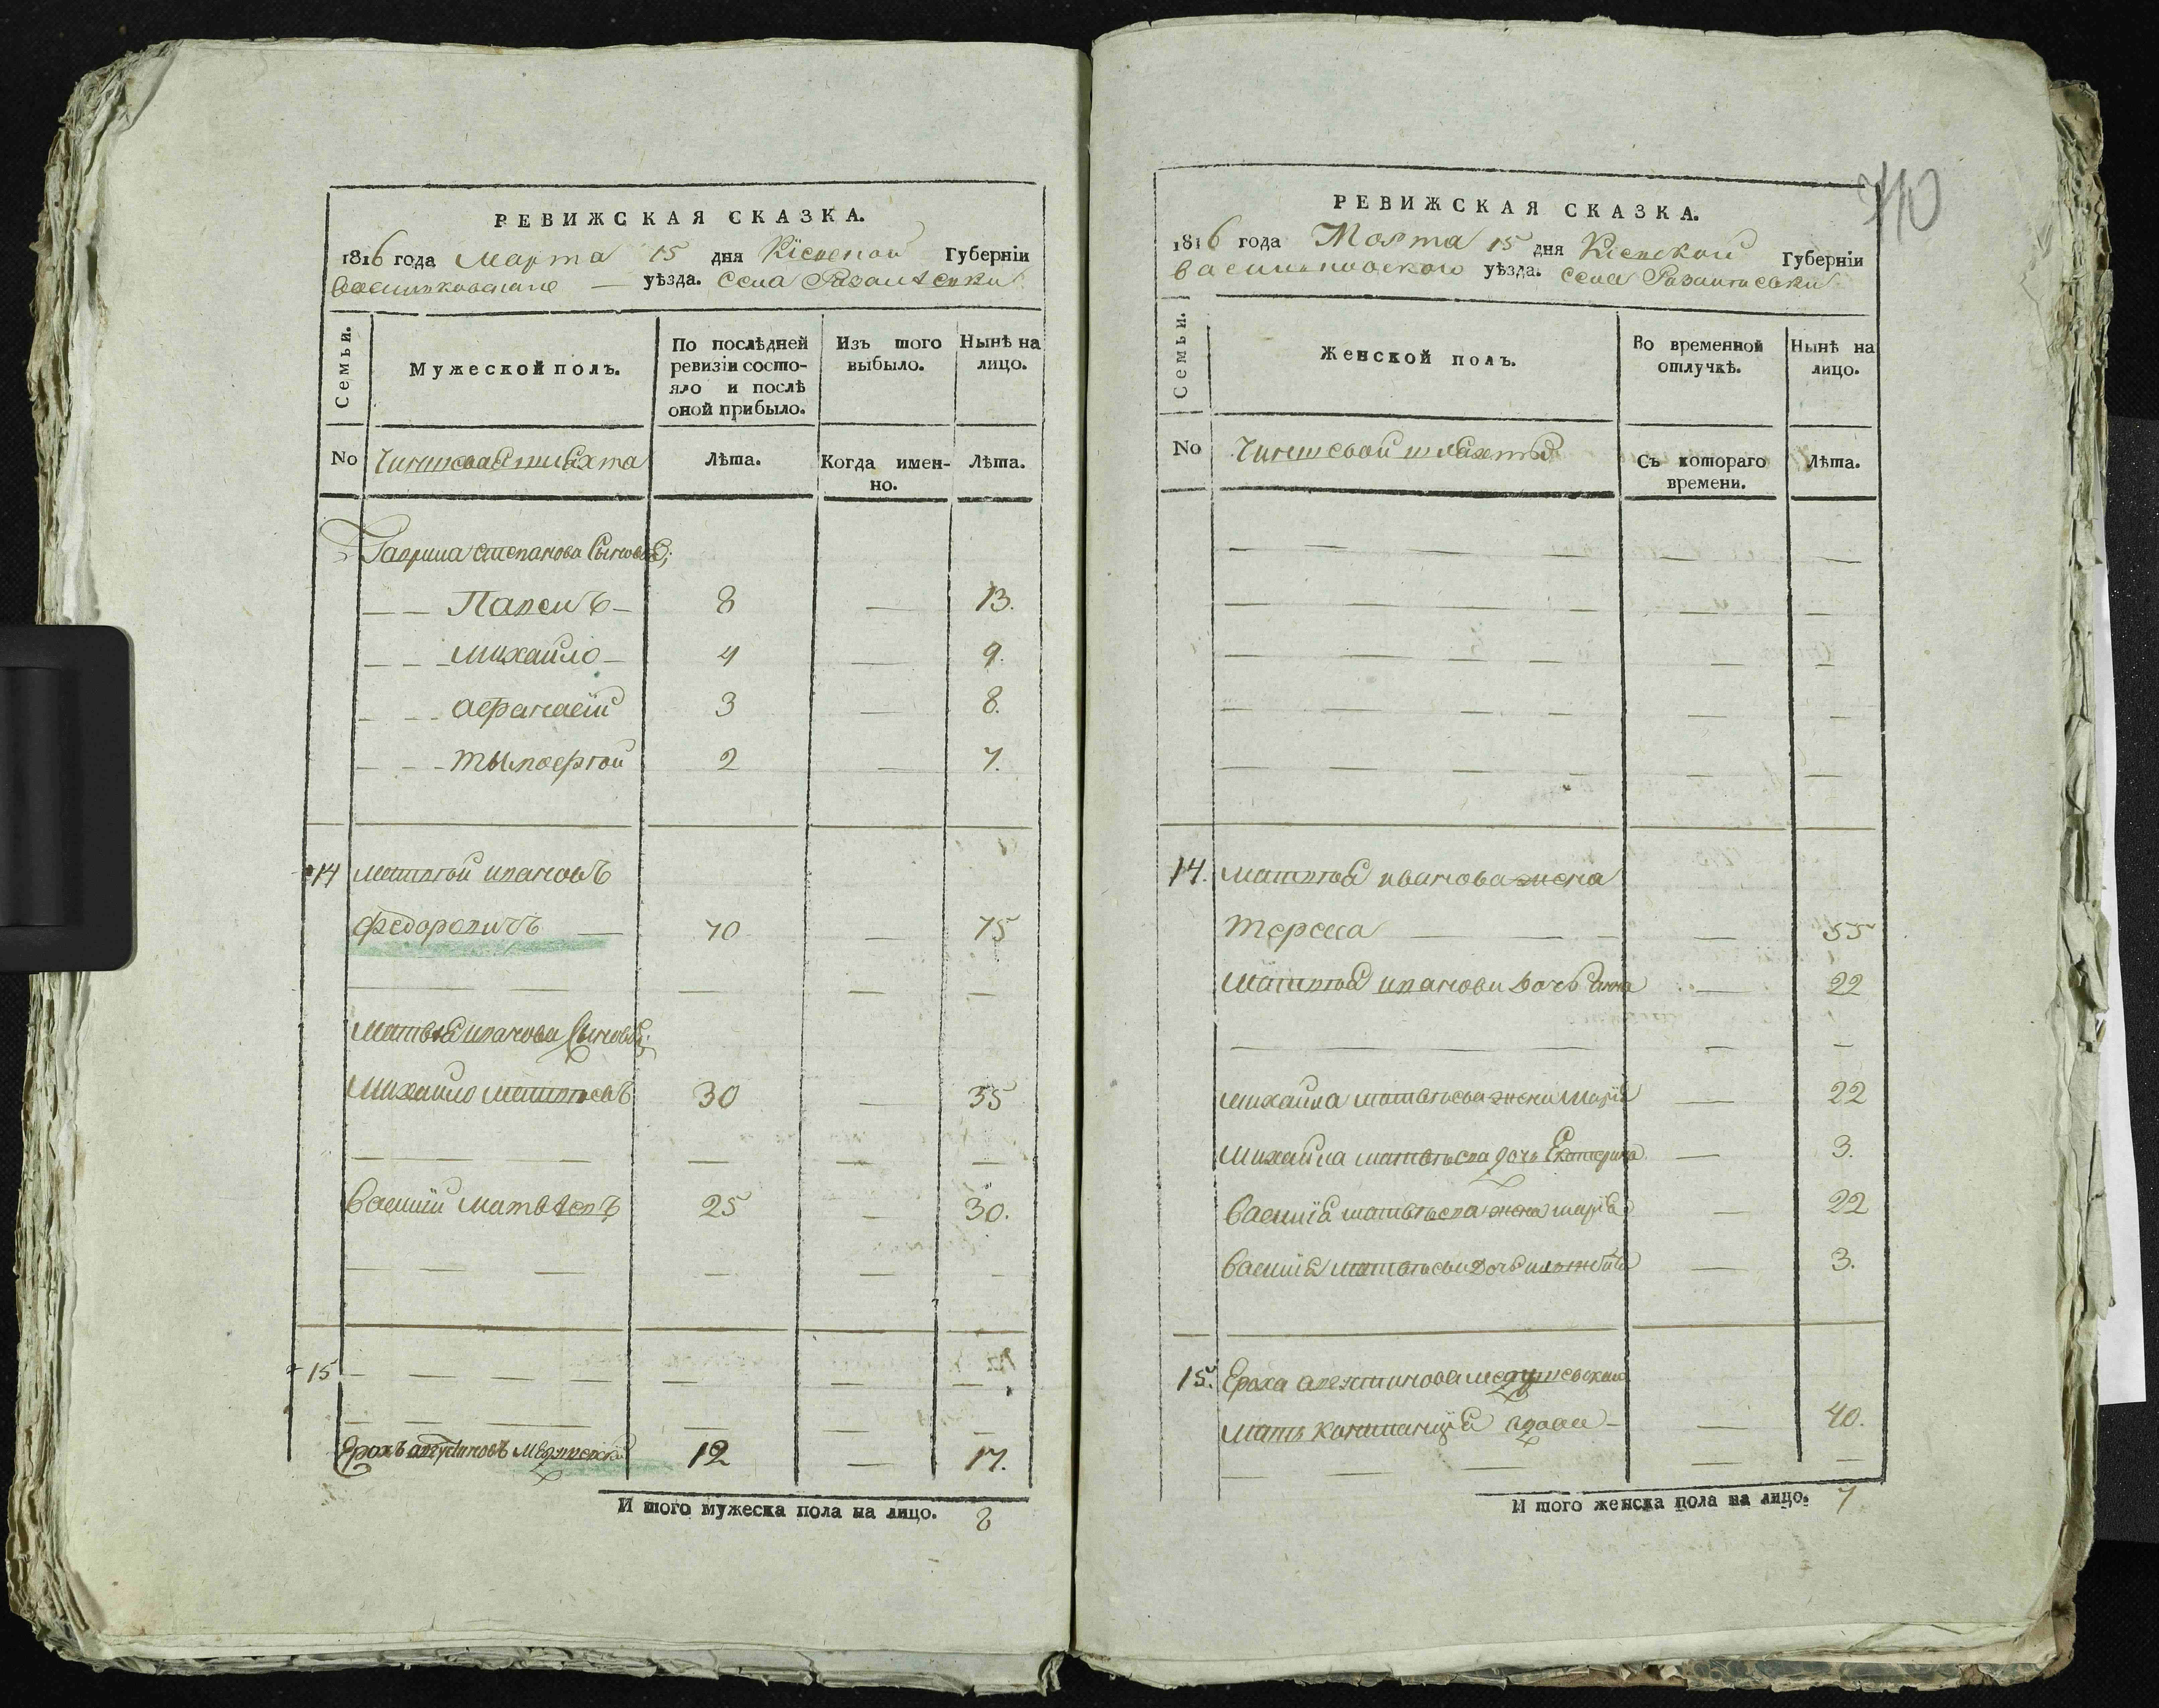 РЕВИЖСКАЯ СКАЗКА.
1816 года Марта 15 дня Кіевской Губерніи
Васильковскаго уѣзда. Села
Семьи.
Мужеской полъ.
По послѣдней ревизіи состояло и послѣ оной прибыло.
Изъ того выбыло.
Нынѣ на лицо.
No Чиншовая шляхта
Лѣта.
Когда именно.
Лѣта.
Гаврила Степанова Сыновья;
— — Павелъ — 8 — 13.
— — Михайло — 4 — 9.
— — Афанасій 3 — 8.
— — Тымофѣй 2 — 7.
14 Матвѣй Ивановъ
Федоровичъ — 70 — 75
Матвѣя Иванова Сыновья:
Михайло Матвѣевъ 30 — 35
Василій Матвѣевъ 25 — 30.
15
Ерохъ 12 — 17.
И того мужеска пола на лицо. 8
РЕВИЖСКАЯ СКАЗКА.
1816 года Марта 15 дня Кіевской Губерніи
Васильковского уѣзда. Села
Семьи.
Женской полъ.
Во временной отлучкѣ.
Нынѣ на лицо.
No Чиншевой шляхты
Съ котораго времени.
Лѣта.
14. Матвѣя Иванова жена
Тереса — 55
Матвѣя Иванова Дочь Анна — 22
Михайла Матвѣева жена Марія — 22
Михайла Матвѣева дочь Екатерина — 3.
Василія Матвѣева жена Марія — 22
Василія Матвѣева Дочь — 3.
15. Ероха
Мать вдова — 40.
И того женска пола на лицо. 7